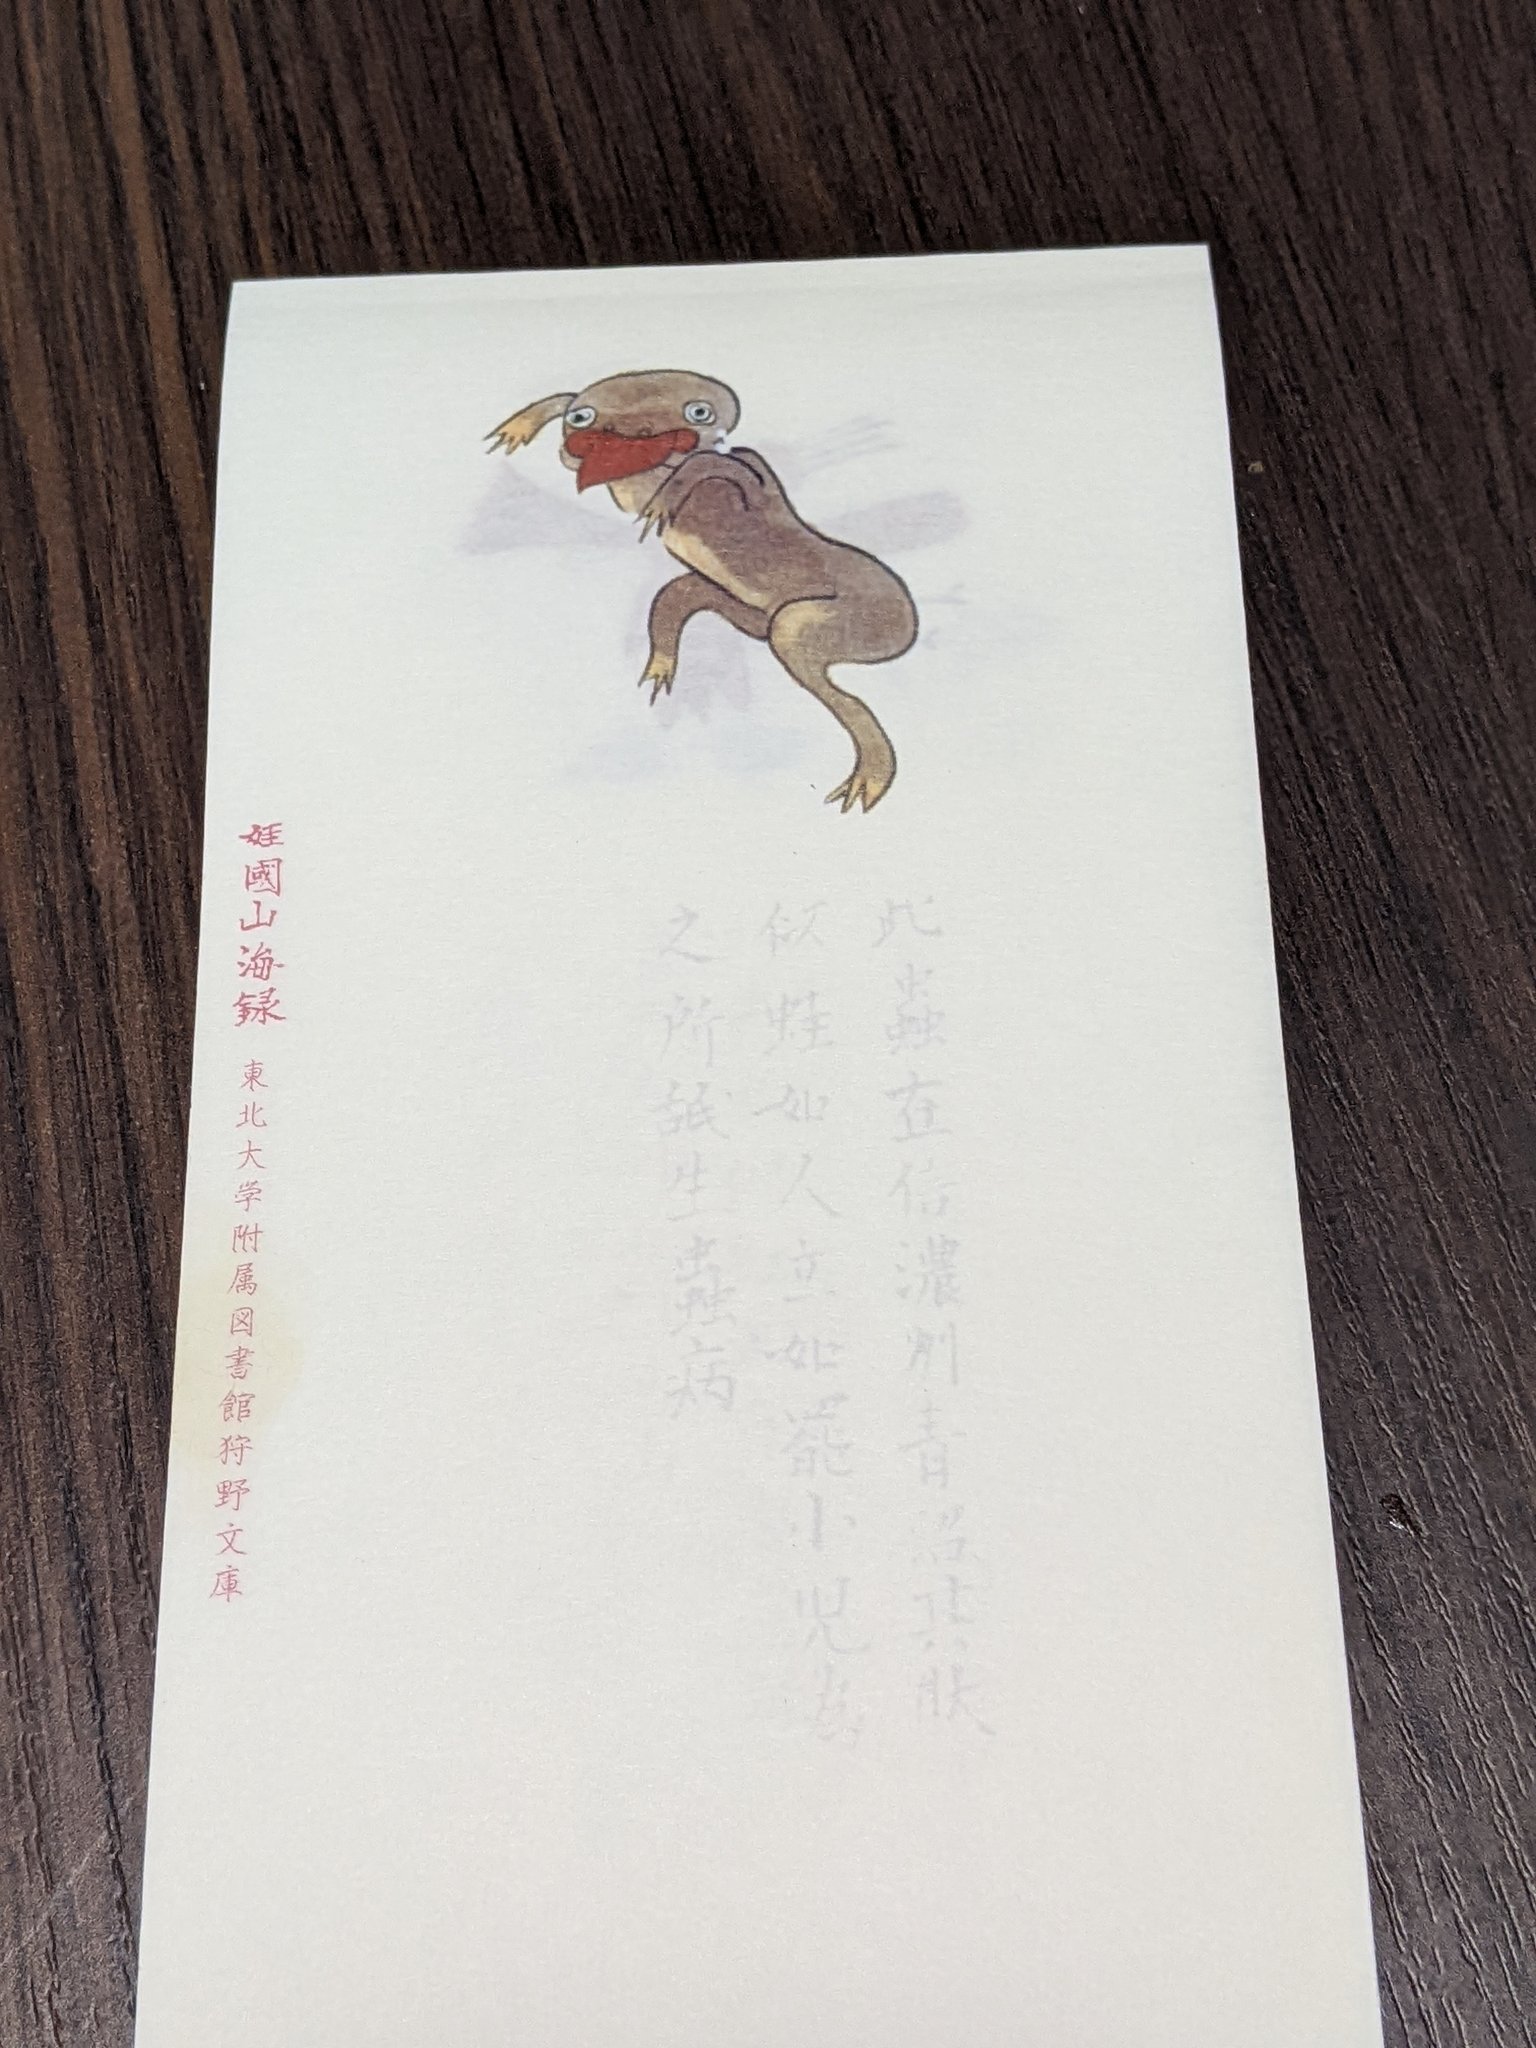 此蟲在信濃州青其狀
似蛙如人立如罷小児為
之所舐生蟲病
姙國山海録 東北大学附属図書館狩野文庫